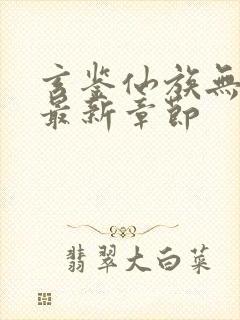 玄鉴仙族無
最新章節
翡翠大白菜